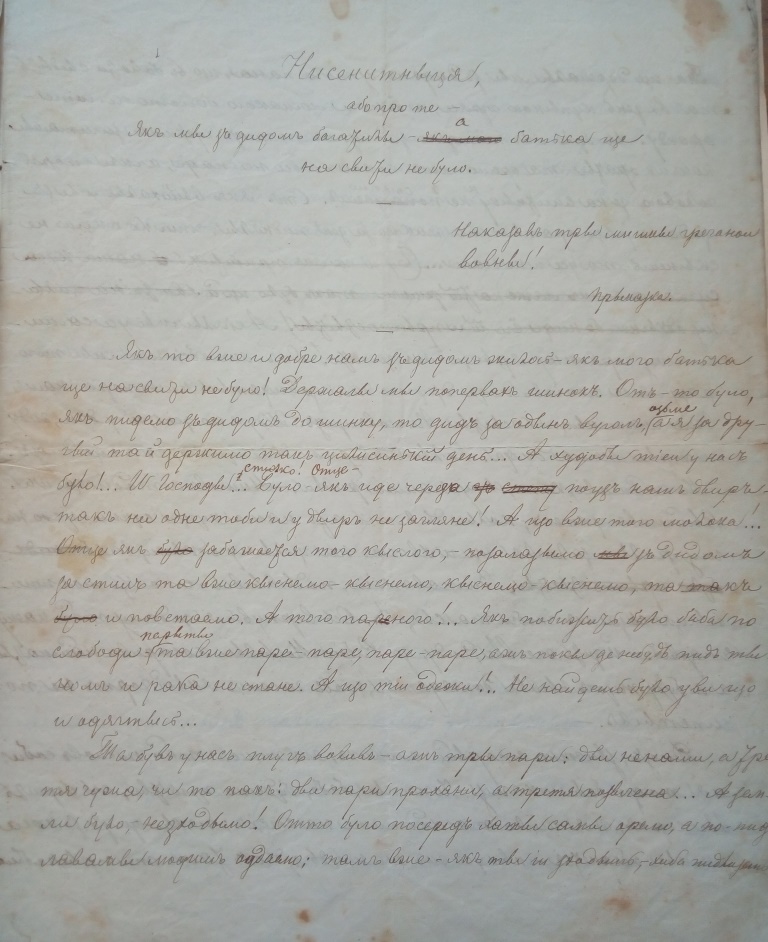 Нисенитныця,
або про те —
Якъ мы зъ дидомъ багатилы — а батька ще
на свити не було.
Наказавъ тры мишкы гречанои
вовны!
Прымазка.
Якъ то вже и добре намъ зъ дидомъ жилось — якъ мого батька
ще на свити не було! Держалы мы попервахъ шинокъ. Отъ-то було,
якъ пидемо зъ дидомъ до шинку, то дидъ за одынъ вуголъ, а я за дру-
гый та й держимо такъ цилисинькый день... А худобы тіеи у насъ
було!... И Господы!.. стилько! Отце — було якъ иде череда поузъ нашъ двиръ —
такъ ни одне тоби и у двиръ не загляне! А що вже того молока!...
Отце якъ забагнется того кыслого, — позалазымо зъ дидомъ
за стилъ та вже кыснемо-кыснемо, кыснемо-кыснемо,
и повстаемо. А того пареного!... Якъ побижить було баба по
слободи парыты — та вже паре-паре, паре-паре, ажъ покы де небудь пидъ ты-
номъ и рака не стане. А що тіи одежи!.. Не найдешъ було у ви що
и одягтысь...
Та бувъ у насъ плугъ воливъ — ажъ тры пары: дви ненаши, а тре-
тя чужа, чи то пакъ: дви пары прохани, а третя позычена... А зем-
ли було, — незходымо! Отто було посередъ хаты самы оремо, а по-пид-
лавамы людямъ oддаемо; тамъ вже — якъ ты іи